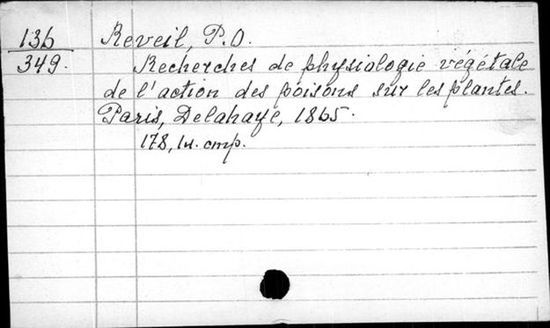 136 Reveil, P.O.
349. Recherches de physiologie végétale
de l'action des poisons sur les plantes.
Paris, Delahaye, 1865.
178, 1н. стр.